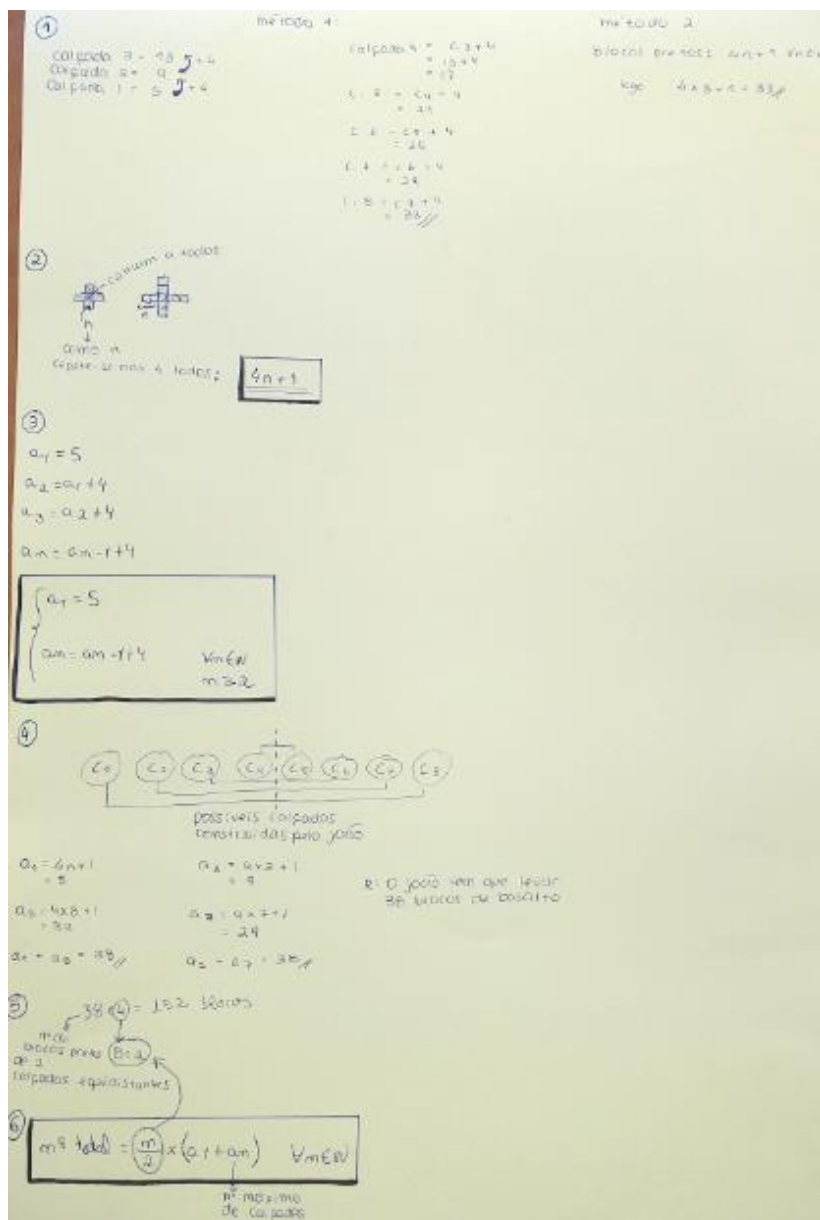 ①
calçada 3 - 13 +4
calçada 2 - 9 +4
calçada 1 - 5
método 1:
calçada 4 = c3+4
= 13+4
= 17
c. 5 = c4+4
= 21
c. 6 = c5+4
= 25
c. 7 = c6+4
= 29
c. 8 = c7+4
= 33
método 2
blocos pretos: 4n+1
logo 4×8+1=33
②
comum a todos
n
n
como n
repete-se nos 4 lados:
4n+1
③
a1=5
a2=a1+4
a3=a2+4
an=an-1+4
a1=5
an=an-1+4 ∀n∈N
n≥2
④
C1 C2 C3 C4 C5 C6 C7 C8
possíveis calçadas
construídas pelo joão
a1=4n+1
= 5
a8=4×8+1
= 33
a1+a8=38
a2=4×2+1
= 9
a7=4×7+1
= 29
a2+a7=38
R: O joão tem que levar
38 blocos de basalto
⑤
38×4=152 blocos
nº de
blocos pretos
de 2
calçadas equidistantes
8:2
⑥
nº total = n/2 × (a1+an) ∀n∈N
nº máximo
de calçadas